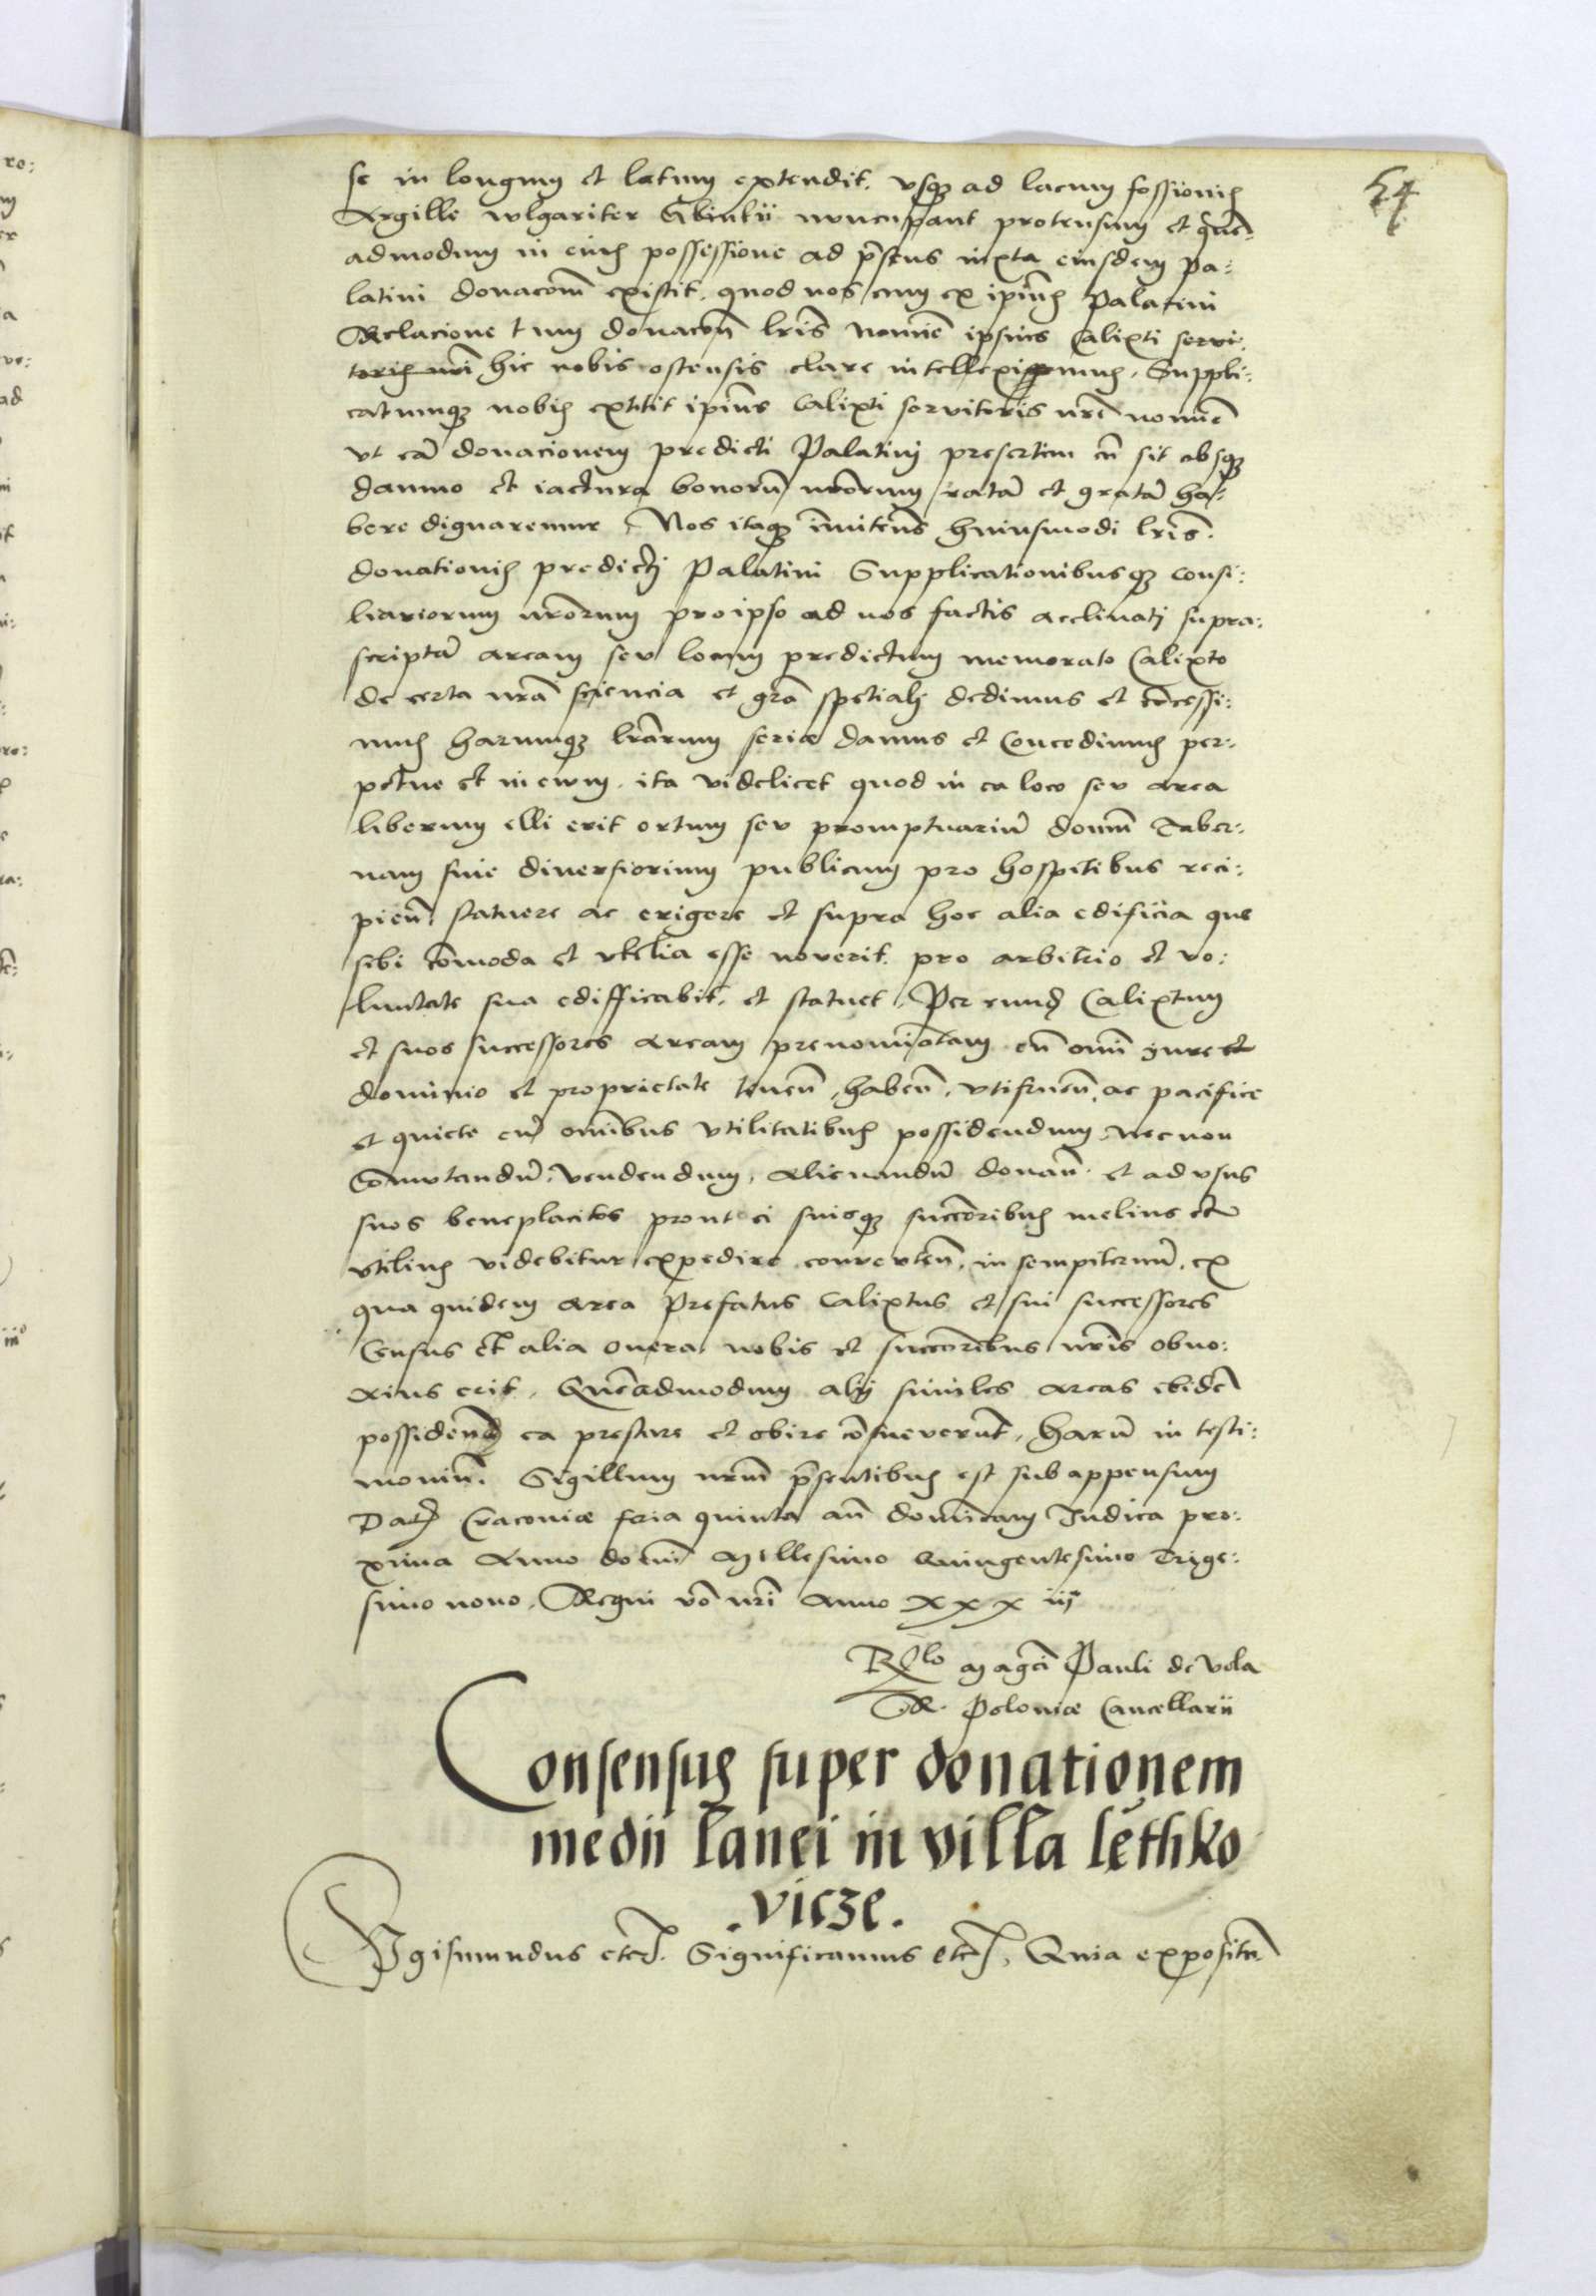 54
se in longum et latum extendit. vsq3 ad lacum fossionis
Argille wlgariter Glinkii nuncupant protensum et quē-
admodum in eius possessione ad p̄sens iuxta eiusdem pa:
latini donacōm existit. quod nos cum ex ip̄ius Palatini
Relacione tum donacōn̄ lr̄is nomīe ipsius Calixti servi:
toris nr̄i hic nobis ostensis clare intelleximus. Suppli:
catumq3 nobis extitit ip̄ius Calixti servitoris nr̄i nomīe
vt eā donacionem predicti Palatini presertim cū sit absq3
damno et iactura bonorū nr̄orum ratā et gratā ha:
bere dignaremur. Nos itaq3 īnitens̄ huiusmodi lr̄is.
donationis predicti Palatini Supplicationibusq3 consi:
liariorum nr̄orum pro ipso ad nos factis acclinati supra:
scriptā aream seu locum predictum memorato Calixto
de certa nr̄a sciencia et gr̄a spetiali dedimus et cōcessi:
mus harumq3 lr̄arum serie damus et Concedimus per:
petue et in ewm. ita videlicet quod in ea loco seu area
liberum illi erit ortum seu promptuariū domū Taber:
nam siue diuersorium publicum pro hospitibus reci:
pien̄. statuere ac erigere et supra hoc alia edificia que
sibi cōmoda et vtilia esse noverit. pro arbitrio et vo:
luntate sua edifficabit. et statuet. Per eund Calixtum
et suos successores aream prenominatam cū omni iure et
dominio et proprietate tenen̄. haben̄. vtifruen̄. ac pacifice
et quiete cū omībus vtilitatibus possidendum. necnon
Cōmutandū. vendendum. alienandū donan̄. et ad vsus
suos beneplacitos prout ei suisq3 succōribus melius et
vtilius videbitur expedire. conuerten̄. in sempiternū. ex
qua quidem area Prefatus Calixtus et sui successores
Census et alia onera nobis et succōribus nr̄is obno:
xius erit. Quēadmodum alij similes areas ibidē
possiden̄ ea prestare et obire cōsueverūt. harū in testi:
moniū. Sigillum nr̄m p̄sentibus est sub appensum
Dat Cracoviæ feria quinta an̄ domīcam Iudica pro:
xima Anno domī Millesimo Quingentesimo Trige:
simo nono. Regni vō nr̄i anno xxxiij
Rlo magci Pauli de vola
R. Poloniæ Cancellarii
Consensus super donationem
medii lanei in villa lethko
.vicze.
Sigismundus etc. Significamus etc. Quia expositū